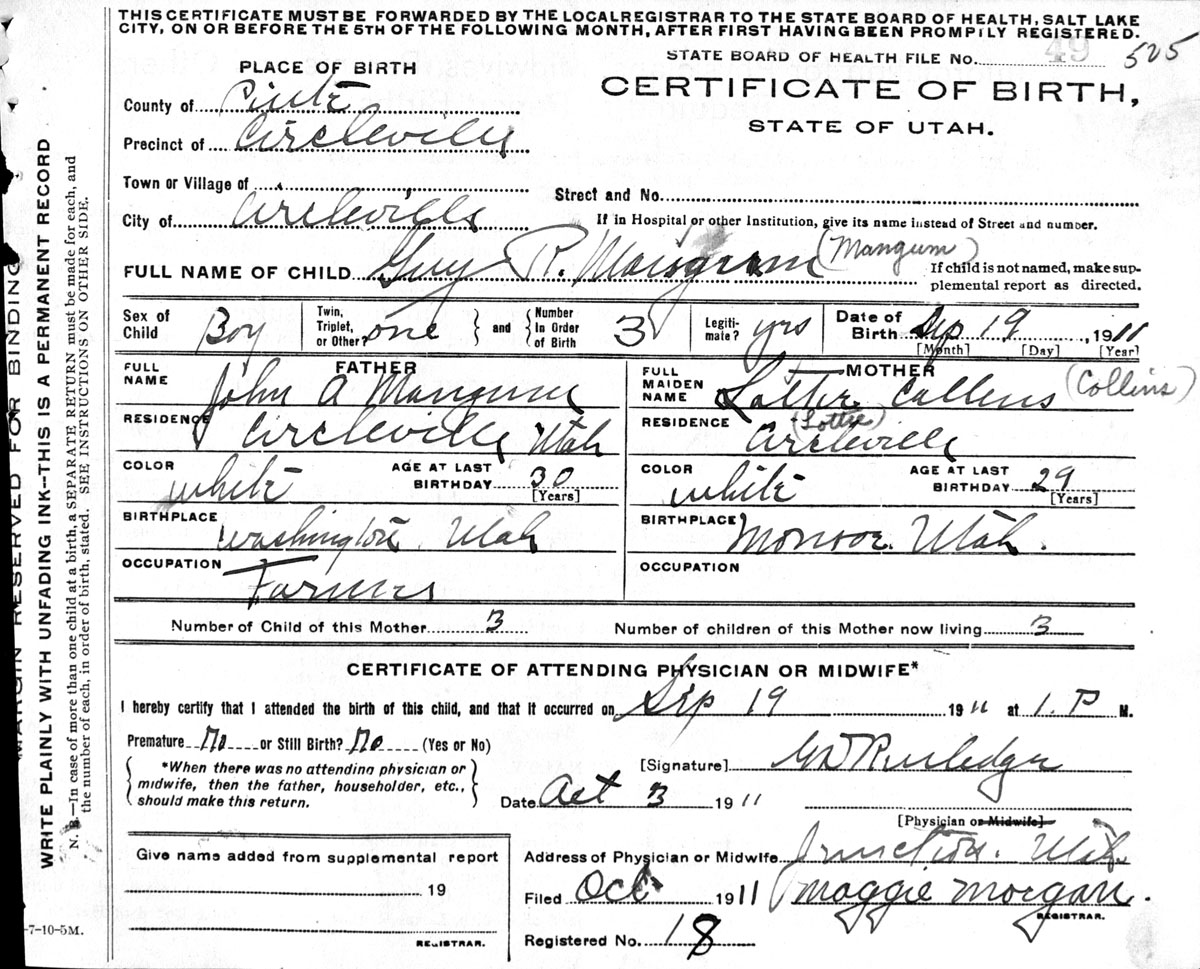 THIS CERTIFICATE MUST BE FORWARDED BY THE LOCAL REGISTRAR TO THE STATE BOARD OF HEALTH, SALT LAKE
CITY, ON OR BEFORE THE 5TH OF THE FOLLOWING MONTH, AFTER FIRST HAVING BEEN PROMPILY REGISTERED.
STATE BOARD OF HEALTH FILE No. 49 525
PLACE OF BIRTH
CERTIFICATE OF BIRTH,
STATE OF UTAH.
County of Piute
Precinct of Circleville
Town or Village of
Street and No.
City of Circleville
If in Hospital or other Institution, give its name instead of Street and number.
FULL NAME OF CHILD Guy R. Mangum (Mangum)
If child is not named, make sup-
plemental report as directed.
Sex of Child Boy
Twin, Triplet, or Other? one and Number In Order of Birth 3
Legiti-mate? yes
Date of Birth Sep 19, 1911
[Month] [Day] [Year]
FATHER
FULL NAME John A Mangum
RESIDENCE Circleville Utah
COLOR white
AGE AT LAST BIRTHDAY 30
[Years]
BIRTHPLACE Washington Utah
OCCUPATION Farmer
MOTHER
FULL MAIDEN NAME Lotter Callens (Collins)
(Lottie)
RESIDENCE Circleville
COLOR white
AGE AT LAST BIRTHDAY 29
[Years]
BIRTHPLACE Monroe. Utah.
OCCUPATION
Number of Child of this Mother 3
Number of children of this Mother now living 3
CERTIFICATE OF ATTENDING PHYSICIAN OR MIDWIFE*
I hereby certify that I attended the birth of this child, and that it occurred on Sep 19 1911 at 1. P M.
Premature No or Still Birth? No (Yes or No)
*When there was no attending physician or
midwife, then the father, householder, etc.,
should make this return.
[Signature]
Date Oct 3 1911
[Physician or Midwife]
Give name added from supplemental report
19
REGISTRAR.
Address of Physician or Midwife Junction. Utah
Filed Oct 1911 Maggie Morgan.
REGISTRAR.
Registered No. 18
-7-10-5M.
MARGIN RESERVED FOR BINDING
WRITE PLAINLY WITH UNFADING INK--THIS IS A PERMANENT RECORD
N. B.--In case of more than one child at a birth, a SEPARATE RETURN must be made for each, and
the number of each, in order of birth, stated. SEE INSTRUCTIONS ON OTHER SIDE.